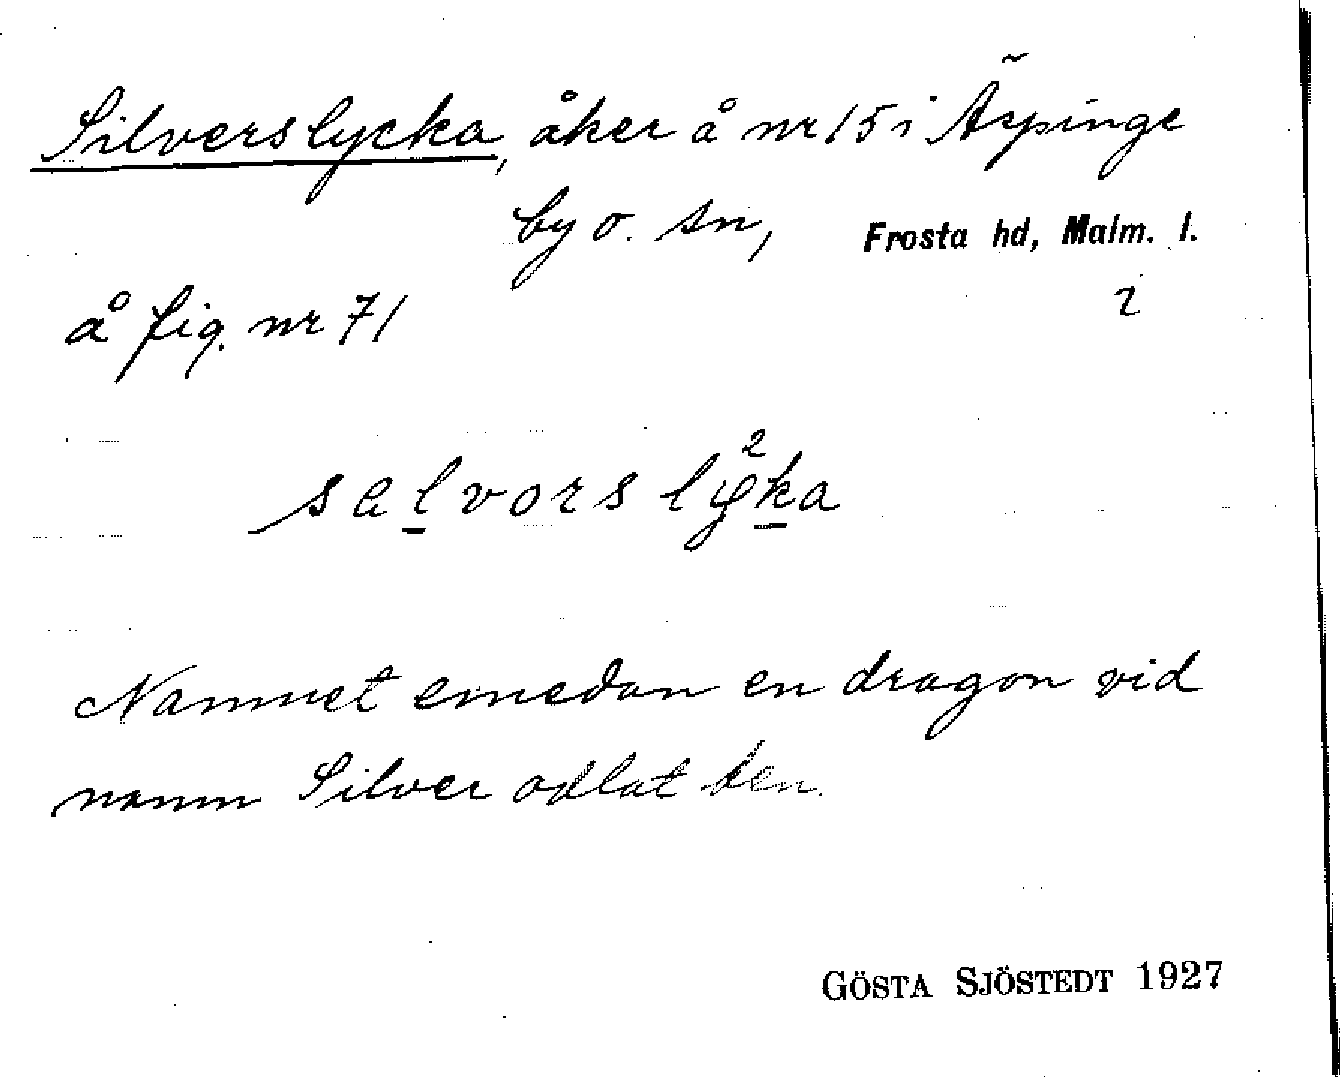 Silverslycka, åker å nr 15 i Äspinge
by o. sn, Frosta hd, Malm. l.
å fig. nr 71
Namnet emedan en dragon vid
namn Silver odlat den.
GÖSTA SJÖSTEDT 1927